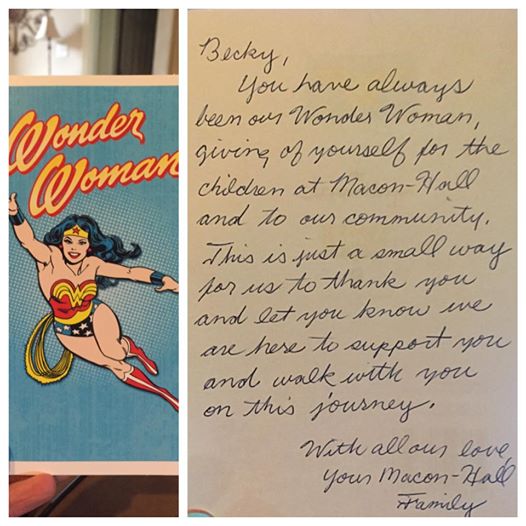 Wonder
Woman
Becky,
You have always
been our Wonder Woman,
giving of yourself for the
children at Macon-Hall
and to our community.
This is just a small way
for us to thank you
and let you know we
are here to support you
and walk with you
on this journey.
With all our love,
Your Macon-Hall
Family